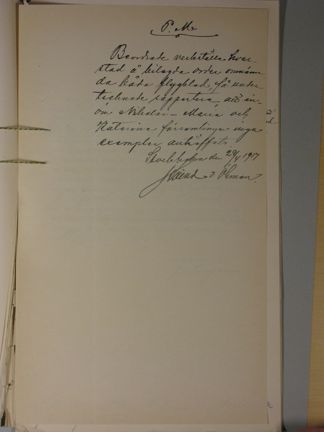 P.M.
Beordrade verkställa kvar-
stad å bilagda order omnämn-
da Röda flygblad, få under-
tecknade rapportera, att in-
om Nikolai- Maria och
Katarina församlingar inga
exemplar anträffats.
Stockholm den 29/4 1917